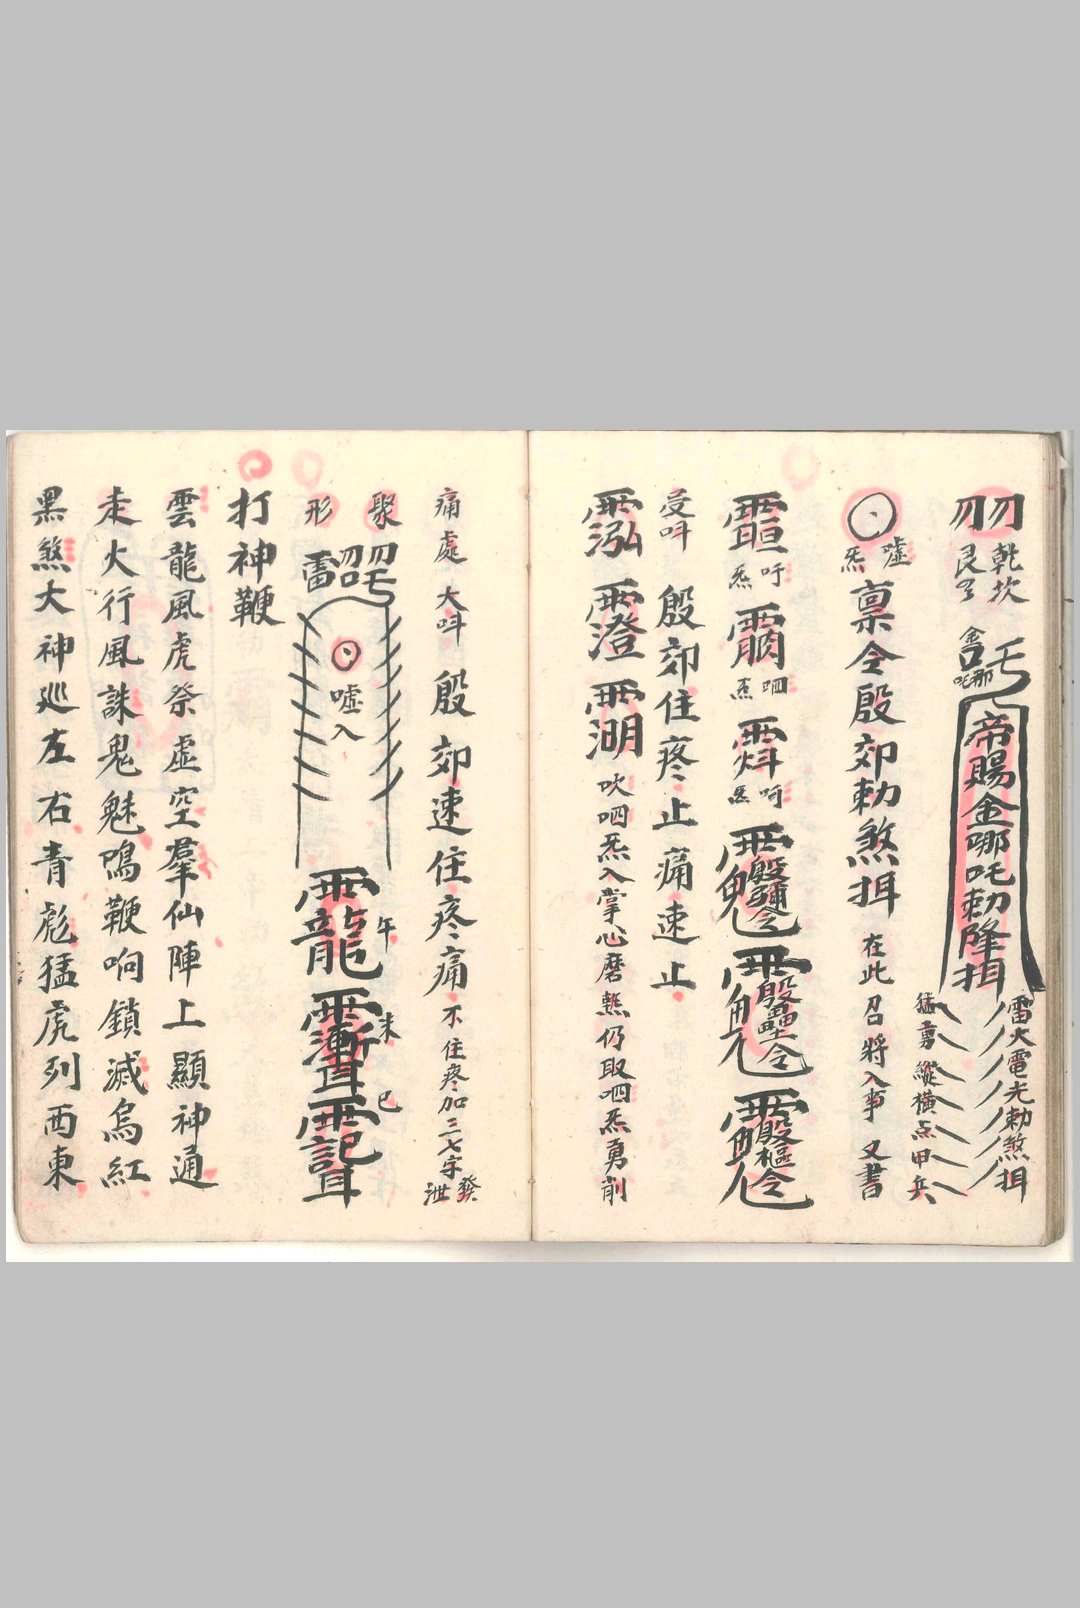 乾坎
艮
帝賜金哪吒勅降揖
雷火電光勅煞揖
猛勇縱橫点甲兵
噓炁
稟令殷郊勅煞揖 在此召將入事 又書
吁炁 呬炁 呵炁
受呌 殷郊住疼止痛速止
吹呬炁入掌心磨熱仍取呬炁勇削
痛處大呌 殷郊速住疼痛 不住疼加三七字
聚形
噓入
午未巳
打神鞭
雲龍風虎祭虛空羣仙陣上顯神通
走火行風誅鬼魅鳴鞭响鎖滅烏紅
黑煞大神巡左右青彪猛虎列西東